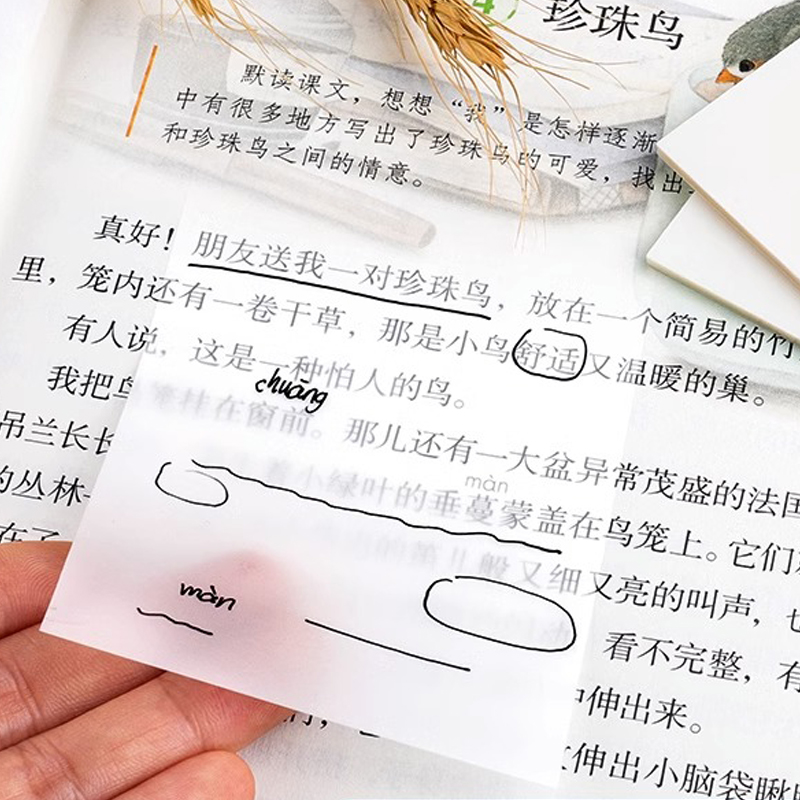 4 珍珠鸟
默读课文，想想“我”是怎样逐渐
中有很多地方写出了珍珠鸟的可爱，找出
和珍珠鸟之间的情意。
真好！朋友送我一对珍珠鸟，放在一个简易的竹
里，笼内还有一卷干草，那是小鸟舒适又温暖的巢。
有人说，这是一种怕人的鸟。
chuāng
我把鸟笼挂在窗前。那儿还有一大盆异常茂盛的法国
màn
吊兰长长 着小绿叶的垂蔓蒙盖在鸟笼上。它们
的丛林一 的笛儿般又细又亮的叫声，也
màn
在了 看不完整，有
中伸出来。
伸出小脑袋瞅